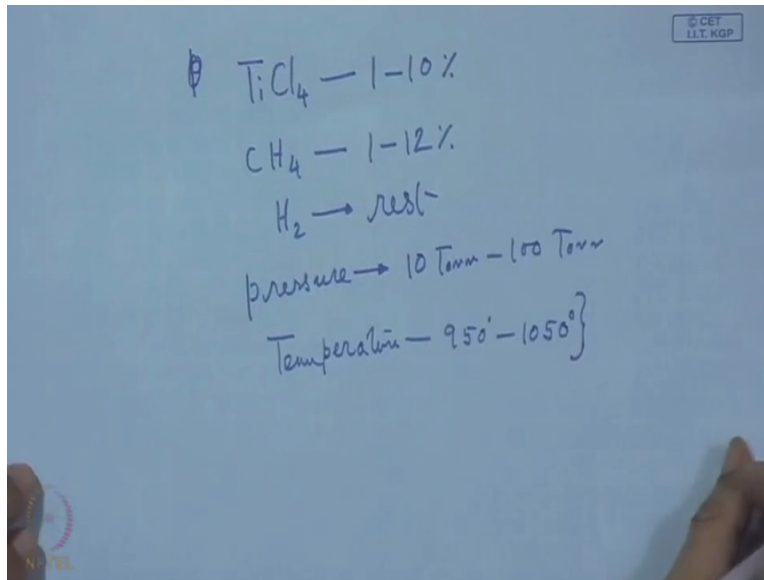 © CET
I.I.T. KGP
TiCl4 — 1-10%
CH4 — 1-12%
H2 → rest
pressure → 10 Torr - 100 Torr
Temperature — 950° - 1050° }
NPTEL